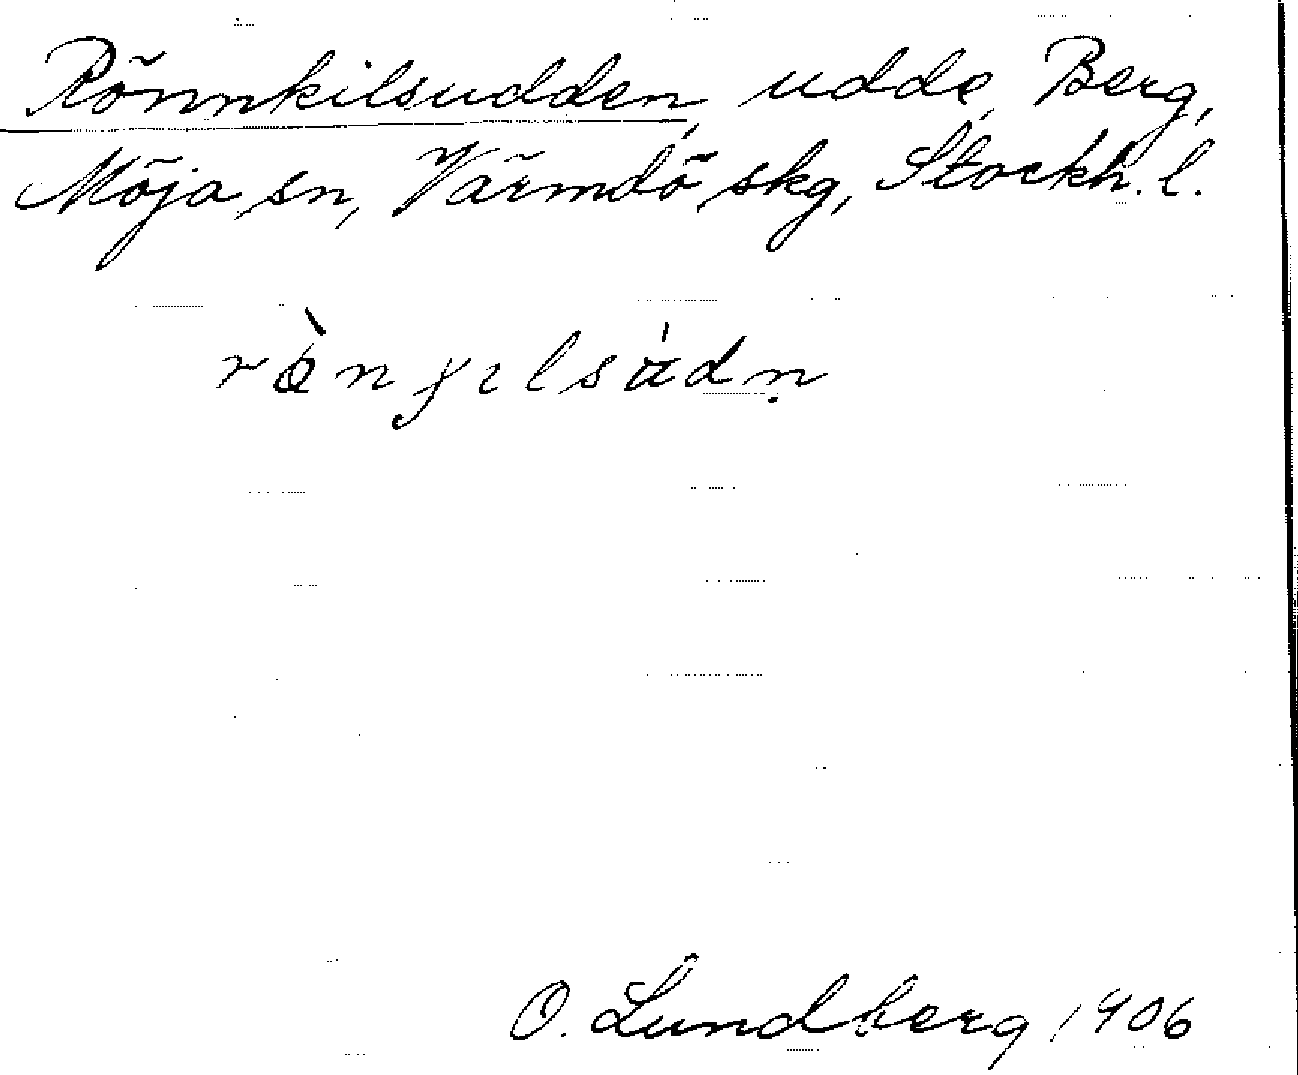 Rönnkilsudden, udde, Berg,
Möja sn, Värmdö skg, Stockh. l.
O. Lundberg 1906